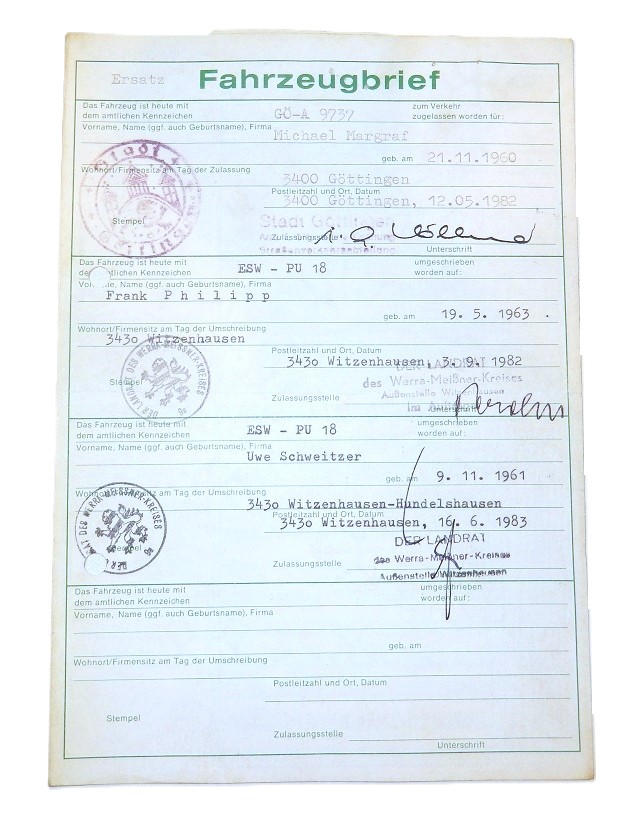 Ersatz Fahrzeugbrief
Das Fahrzeug ist heute mit
dem amtlichen Kennzeichen GÖ-A 9737 zum Verkehr zugelassen worden für:
Vorname, Name (ggf. auch Geburtsname), Firma
Michael Margraf
geb. am 21.11.1960
Wohnort/Firmensitz am Tag der Zulassung
3400 Göttingen
Postleitzahl und Ort, Datum
3400 Göttingen, 12.05.1982
Stempel
Stadt Göttingen
Zulassungsstelle
Unterschrift
Das Fahrzeug ist heute mit
dem amtlichen Kennzeichen ESW - PU 18 umgeschrieben worden auf:
Vorname, Name (ggf. auch Geburtsname), Firma
Frank Philipp
geb. am 19. 5. 1963 .
Wohnort/Firmensitz am Tag der Umschreibung
343o Witzenhausen
Postleitzahl und Ort, Datum
343o Witzenhausen, 3. 9. 1982
DER LANDRAT DES WERRA-MEISSNER-KREISES
Stempel
DER LANDRAT
des Werra-Meißner-Kreises
Außenstelle Witzenhausen
Zulassungsstelle
Im Auftrag
Unterschrift
Das Fahrzeug ist heute mit
dem amtlichen Kennzeichen ESW - PU 18 umgeschrieben worden auf:
Vorname, Name (ggf. auch Geburtsname), Firma
Uwe Schweitzer
geb. am 9. 11. 1961
Wohnort/Firmensitz am Tag der Umschreibung
343o Witzenhausen-Hundelshausen
Postleitzahl und Ort, Datum
343o Witzenhausen, 16. 6. 1983
Stempel
DER LANDRAT
des Werra-Meißner-Kreises
Außenstelle Witzenhausen
Zulassungsstelle
Das Fahrzeug ist heute mit
dem amtlichen Kennzeichen umgeschrieben worden auf:
Vorname, Name (ggf. auch Geburtsname), Firma
geb. am
Wohnort/Firmensitz am Tag der Umschreibung
Postleitzahl und Ort, Datum
Stempel
Zulassungsstelle
Unterschrift